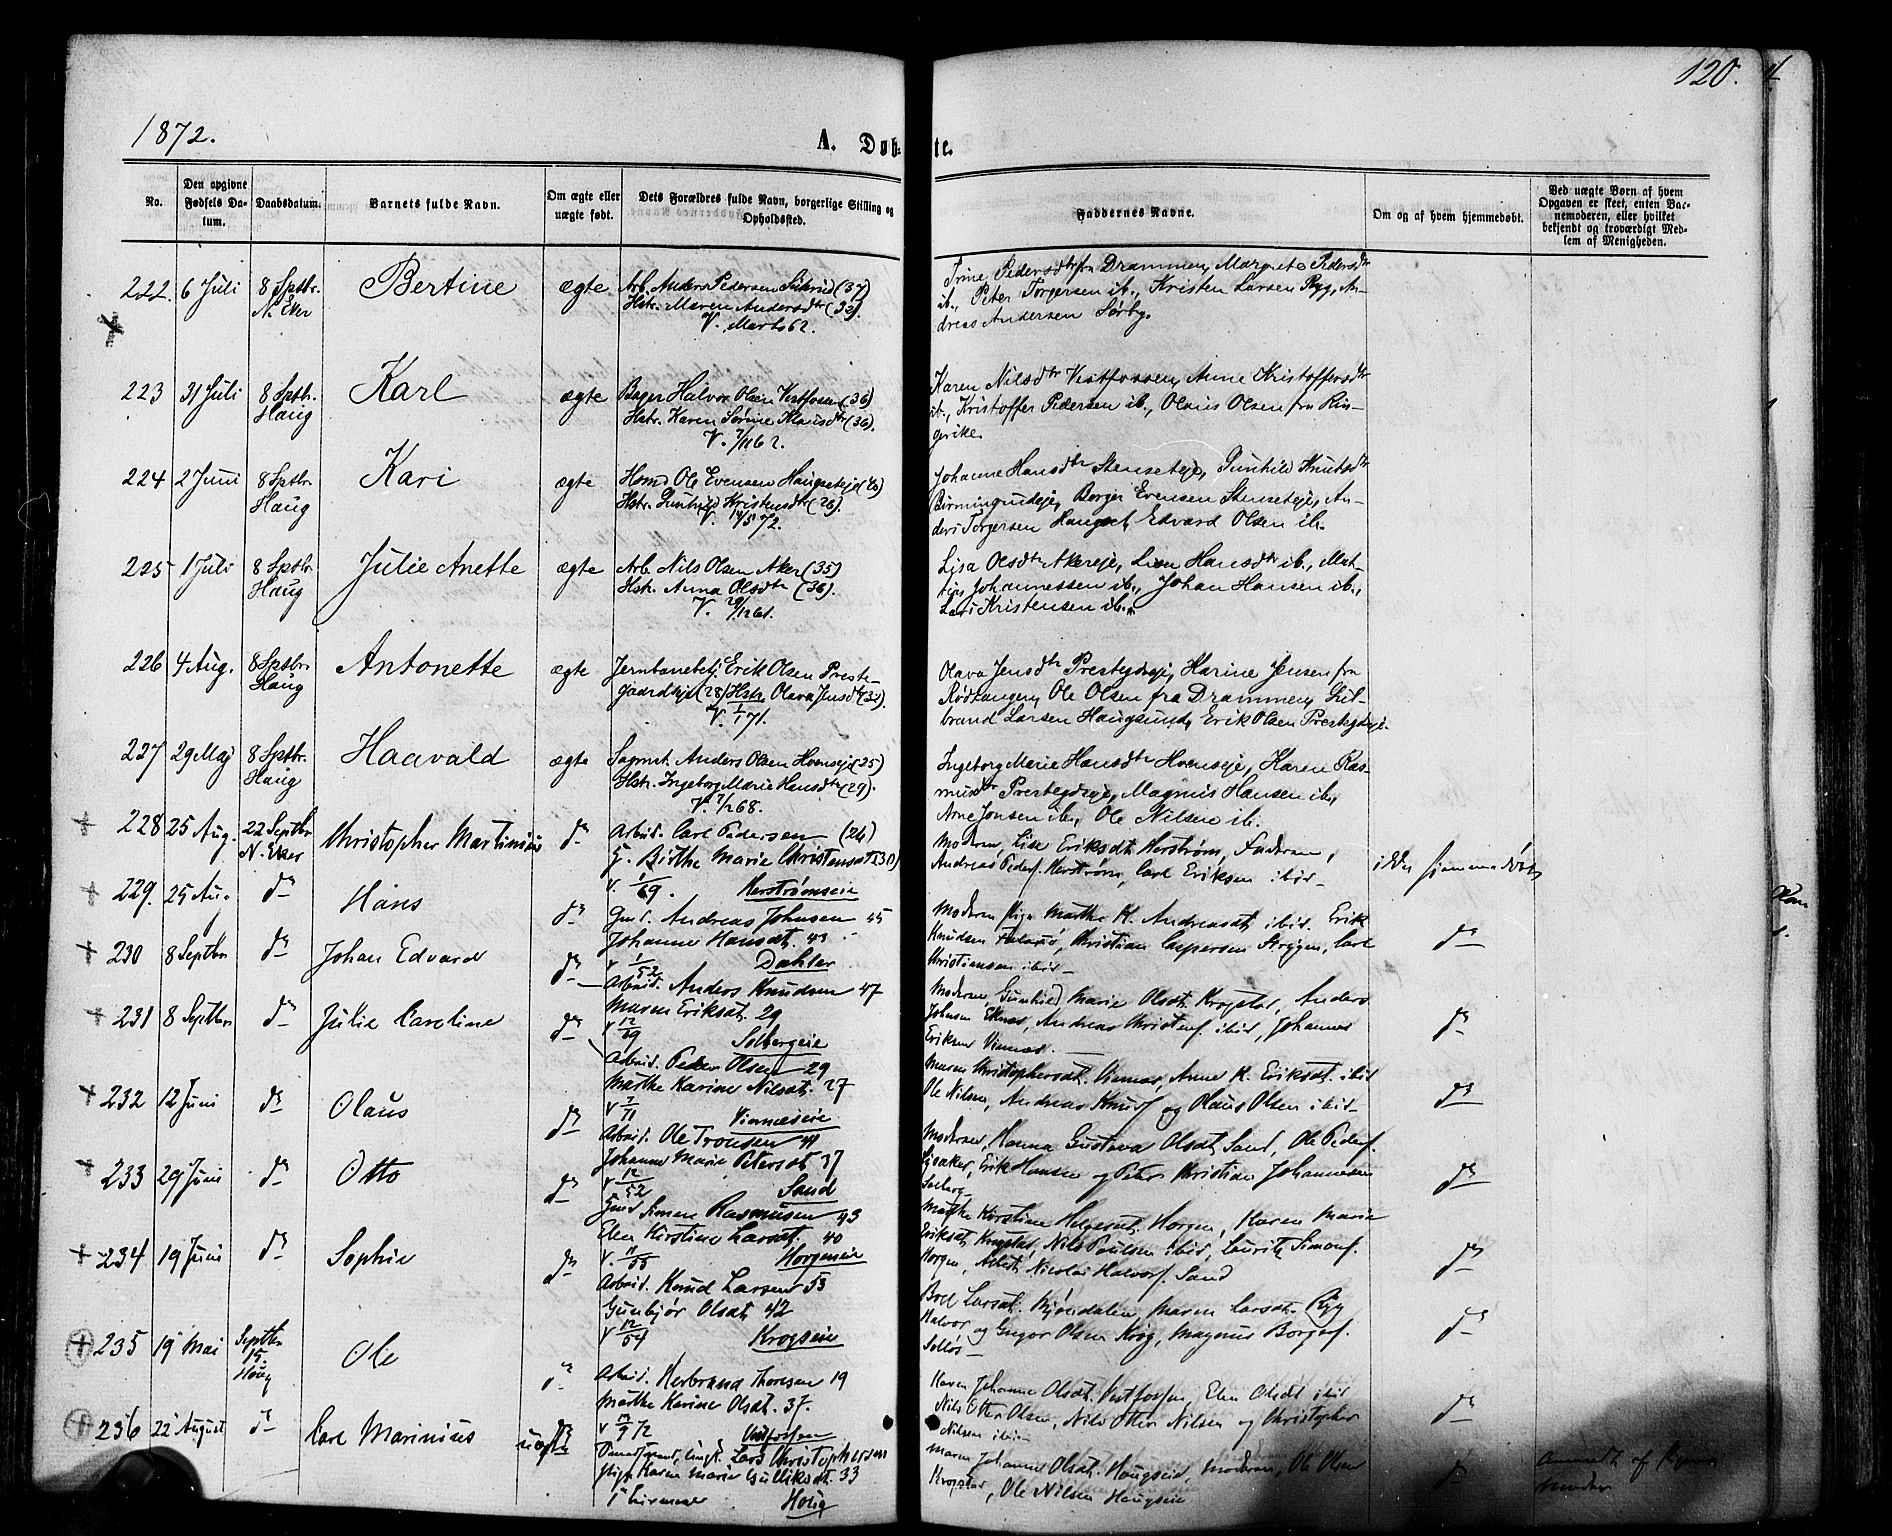 120.
1872.
A. Døb-te.
No.
Den opgivne Fødsels Da-tum.
Daabsdatum.
Barnets fulde Navn.
Om ægte eller uægte født.
Dets Forældres fulde Navn, borgerlige Stilling og Opholdssted.
Faddernes Navne.
Om og af hvem hjemmedøbt.
Ved uægte Børn af hvem Opgaven er skeet, enten Bar-nemoderen, eller hvilket bekjendt og troværdigt Med-lem af Menigheden.
222. 6 Juli 8 Sptbr. N. Eker Bertine ægte
Arb. Anders Pedersen (37)
Hstr. Maren Andersdtr (32).
V. Marts 62.
Trine Pedersdtr fra Drammen, Margrete Pedersdtr
ib., Peter Torgersen ib., Kristen Larsen Ryg, An-
dreas Andersen Sørby.
223 31 Juli 8 Sptbr. Haug Karl ægte
Bager Halvor Olsen Vestfossen (36)
Hstr. Karen Sørine Klausdtr (36).
V. 7/11 62.
Karen Nilsdtr Vestfossen, Anne Kristoffersdtr
ib., Kristoffer Pedersen ib., Olaus Olsen fra Rin-
gerike.
224 2 Juni 8 Sptbr. Haug Kari ægte
Hsmd Ole Evensen Haugseteje
Hstr. Gunhild Kristensdtr (26).
V. 14/5 72.
Johanne Hansdtr Stenseteje, Gunhild Knutsdtr
Birmingrudeje, Borger Evensen Stenseteje, An-
ders Torgersen Haugset, Edvard Olsen ib.
225 1 Juli 8 Sptbr Haug Julie Anette ægte
Arb. Nils Olsen Aker (35)
Hstr. Anna Olsdtr (36).
V. 29/12 61.
Lisa Olsdtr Akereje, Lise Hansdtr ib., Mat-
tis Johannessen ib., Johan Hansen ib.,
Lars Kristensen ib.
226 4 Aug. 8 Sptbr. Haug Antonette ægte
Jernbanebetj. Erik Olsen Preste-
gaardseje (28) Hstr. Olava Jensdtr (32).
V. 1/1 71.
Olava Jensdtr Prestegdseje, Harine Jensen fra
Rødtangen, Ole Olsen fra Drammen, Gul-
brand Larsen Haugsund, Erik Olsen Prestegdseje.
227 29 Maj 8 Sptbr. Haug Haavald ægte
Sagmst. Anders Olsen Hvenseje (25)
Hstr. Ingeborg Marie Hansdtr (29).
V. 7/2 68.
Ingeborg Marie Hansdtr Hvenseje, Karen Ras-
musdtr Prestegdseje, Magnus Hansen ib.,
Arne Jonsen ib., Ole Nilsen ib.
228 25 Aug. 22 Septbr N. Eker Christopher Martinius do
Arbeid. Carl Pedersen (26)
G. Birthe Marie Christensdt (30)
V. 1/69. Herstrømseie
Moderen, Lise Eriksdt Herstrøm, Faderen,
Andreas Peders. Herstrøm, Carl Eriksen ibid
ikke hjemmedøbt
229. 25 Aug. do Hans do
Gmd. Andreas Johnsen 45
Johanne Hansdt. 43
V 1/52 Dahler
Moderen, Pige Marthe K. Andreasdt ibid. Erik
Knudsen, Christian Caspersen Strygen, Carl
Christiansen ibid
do
230 8 Septbr do Johan Edvard do
Arbeid. Anders Knudsen 47
Maren Eriksdt. 29
V 12/69 Solbergeie
Moderen, Gunhild Marie Olsdt. Krogstad, Anders
Johnsen Eknes, Andreas Christens. ibid, Johannes
Eriksen Vinnes.
do
231 8 Septbr do Julie Caroline do
Arbeid. Peder Olsen 29
Marthe Karine Nilsdt. 27
V 7/71 Vinneseie
Maren Christophersdt. Vinnes, Anne K. Eriksdt. ibid
Ole Nilsen, Andreas Knuds. og Olaus Olsen ibid
do
232 12 Juni do Olaus do
Arbeid. Ole Tronsen 41
Johanne Marie Petersdt 37
V 12/52 Sand
Moderen, Hanna Gustava Olsdt Sand, Ole Peders.
Lysaker, Erik Hansen og Peter Christian Johannesen
Solberg
do
233 29 Juni do Otto do
Gmd Simen Rasmusen 43
Elen Kirstine Larsdt. 40
V. 11/53 Horgeneie
Marthe Kirstine Helgesdt. Horgen, Karen Marie
Eriksdt. Krogstad, Nils Paulsen ibid, Lauritz Simons.
Horgen, Nicolai Halvors. Sand
do
234 19 Juni do Sophie do
Arbeid. Knud Larsen 53
Gunbjør Olsdt. 42
V 12/54 Krogseie
Boel Larsdt. Mjøndalen, Maren Larsdt. Ryg
Halvor og Gregor Olsen Krog, Magnus Borgers.
Solløs
do
235 19 Mai Septbr 15. Houg Ole do
Arbeid. Herbrand Thoresen 19
Marthe Karine Olsdt. 37.
Vestfossen
Karen Johanne Olsdt. Vestfossen, Elen Olsdt ibid
Nils Otter Olsen, Nils Otter Nilsen og Christopher
Nilsen ibid
do
236 22 August do Carl Marinius uægte
Lars Christophersen
Pige Karen Marie Gulliksdt. 33
Houg
Maren Johanne Olsdt. Hougseie, Moderen, Ole Olsen
Krogstad, Ole Nilsen Hougseie
do
Anmeldt af Pigens
Moder